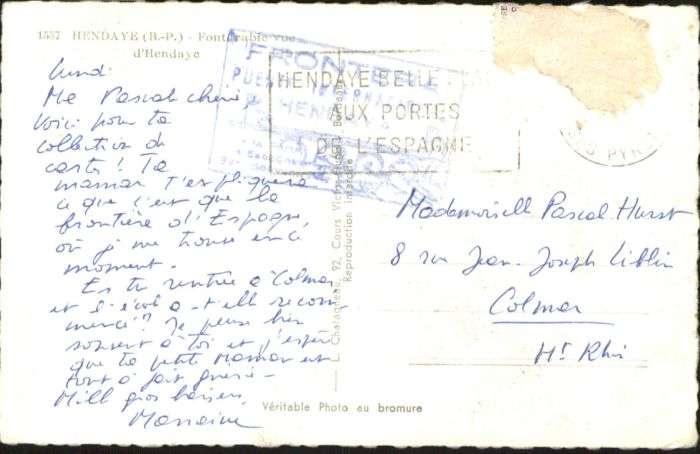 1557 HENDAYE (B.-P.) - Fontarabie vue
d'Hendaye
FRONTIERE
HENDAYE
HENDAYE BELLE PLAGE
AUX PORTES
DE L'ESPAGNE
Lundi
Ma Pascale chérie
Voici pour ta
collection de
cartes! Ta
maman t'expliquera
ce que c'est que la
frontière d'Espagne,
où je me trouve en ce
moment.
Es tu rentrée à Colmar
et l'école a-t-elle recom
mencé? Je pense bien
souvent à toi et j'espère
que ta petite maman est
tout à fait guérie-
Mille gros baisers
Marraine
Mademoiselle Pascale Hurst
8 rue Jean-Joseph Liblin
Colmar
Ht Rhin
L. Chatagneau, 92, Cours Victor-Hugo, Bordeaux
Reproduction interdite
Véritable Photo au bromure